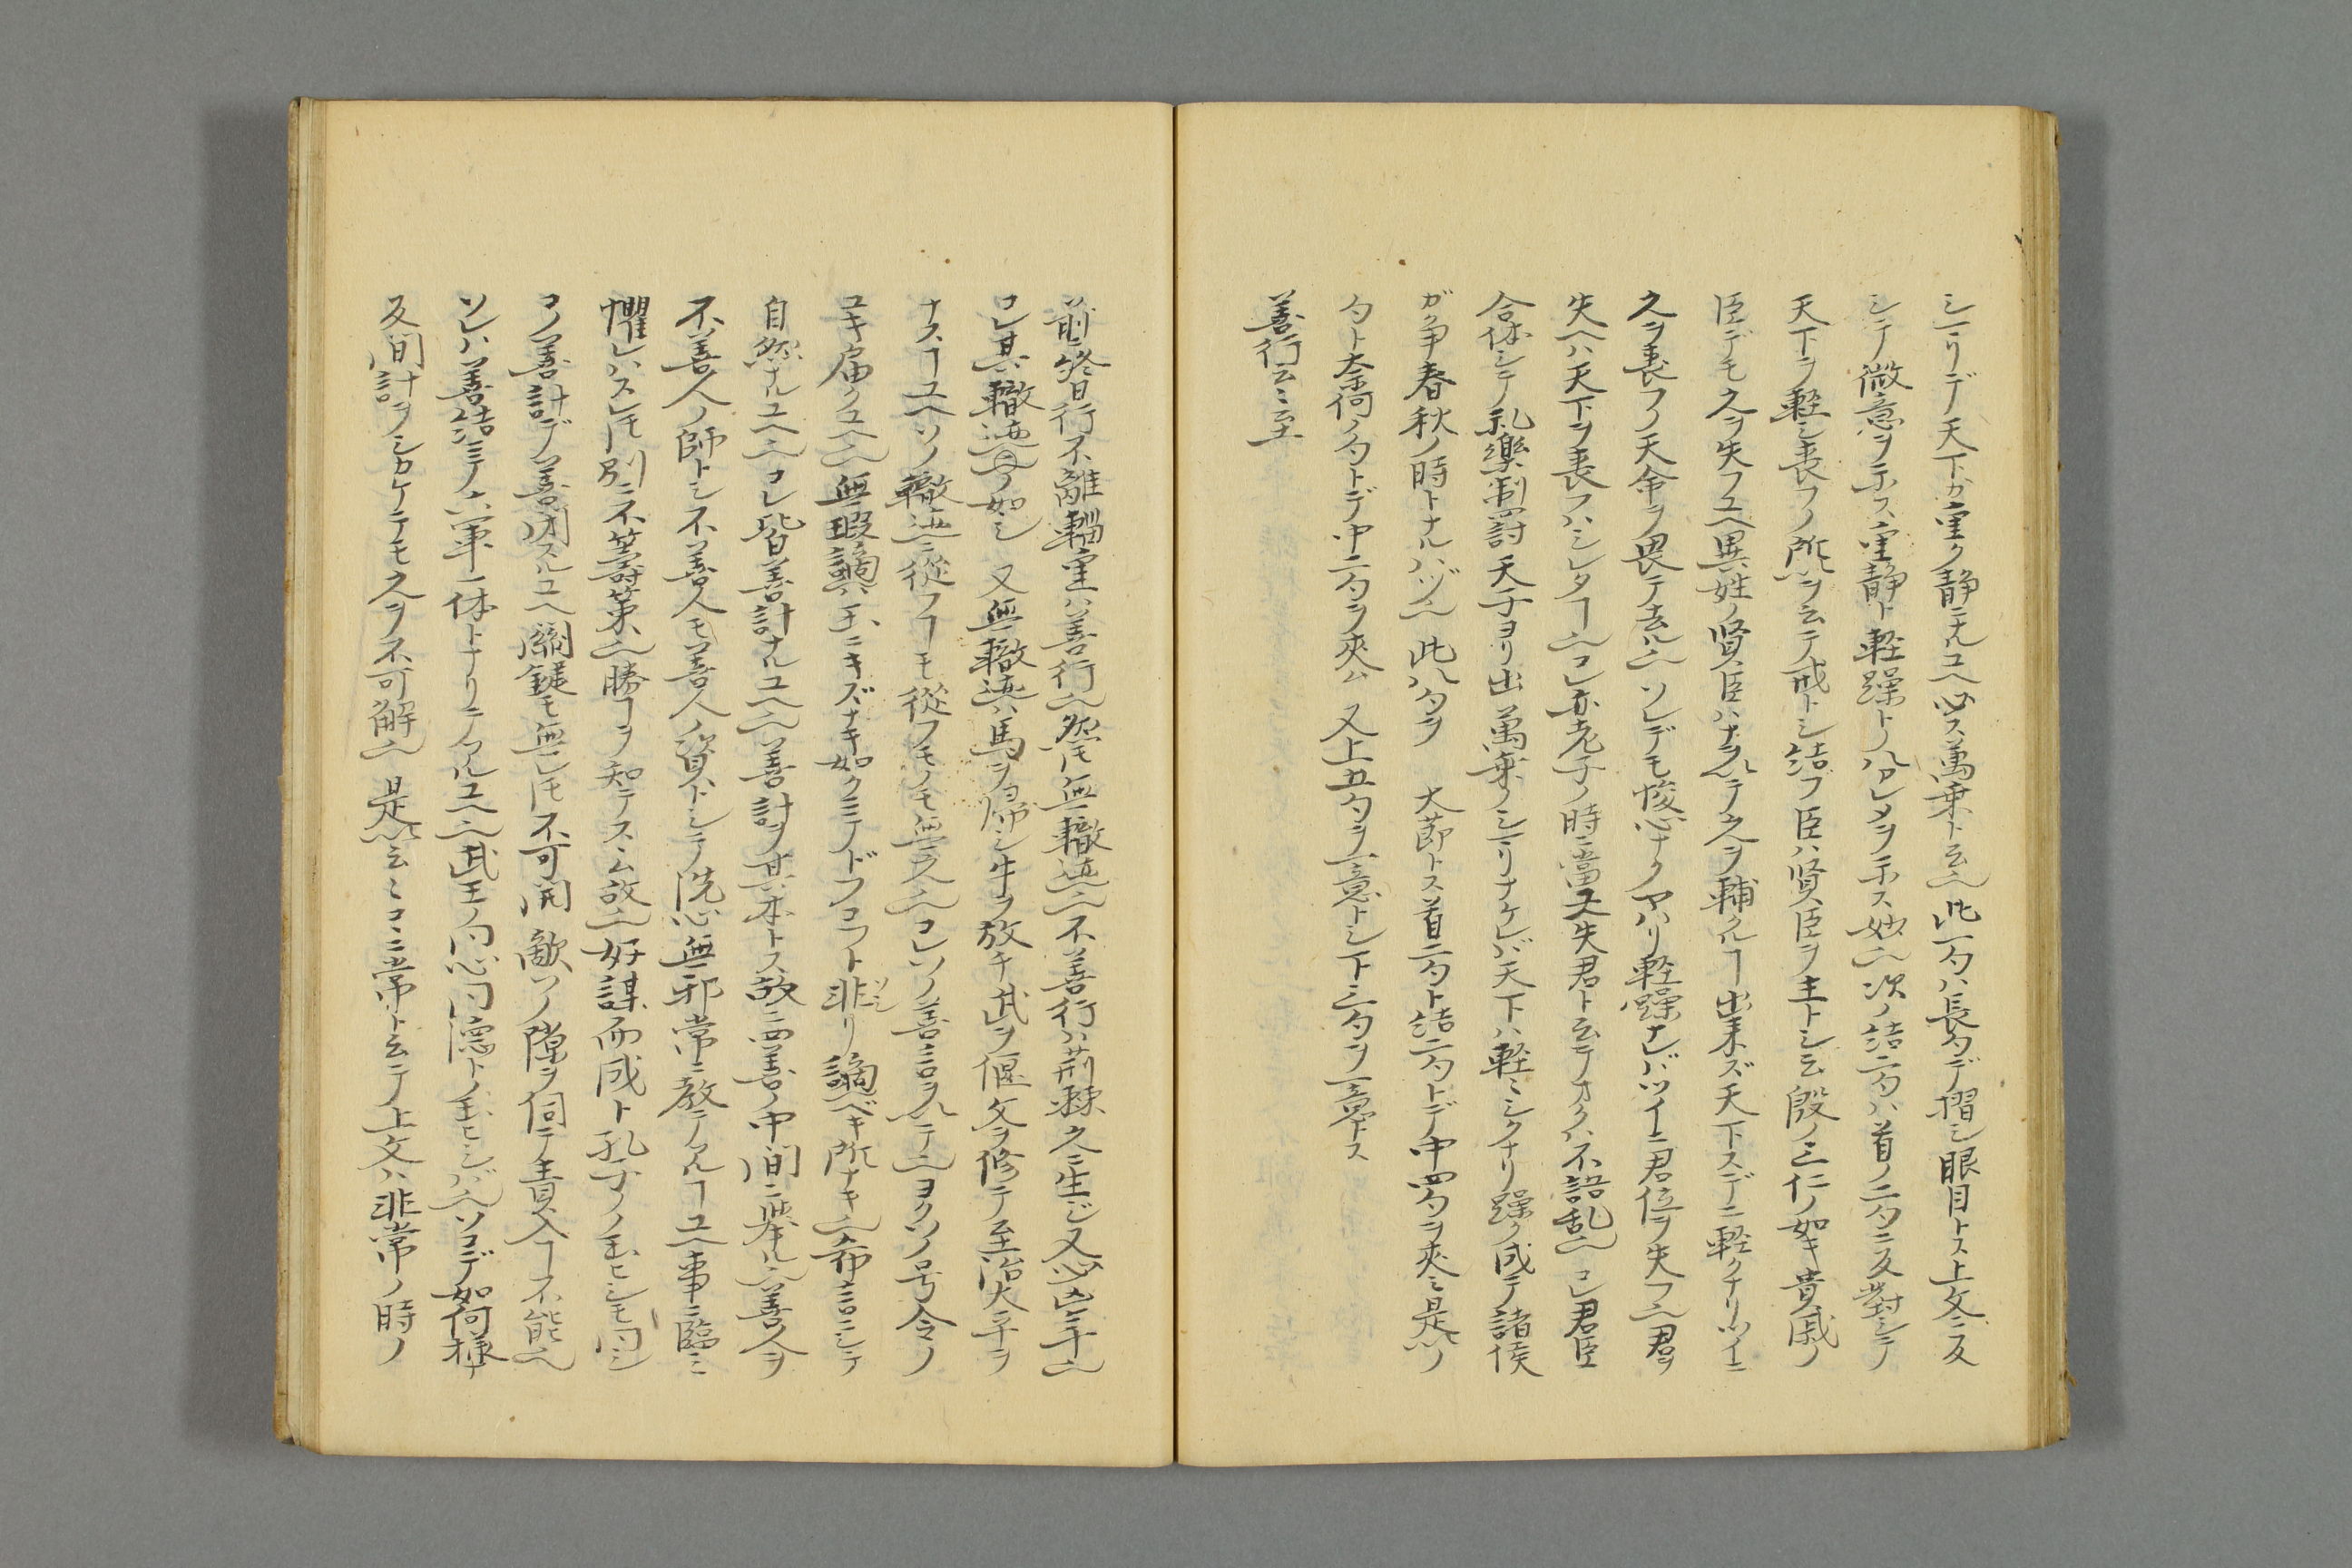 シマリデ天下ガ重ク静ニナルユヘ必ス萬乗ト云ヘ此一句ハ長句デ摺シ眼目トス上文ニ反
シテ微意ヲ示ス重静ト軽躁トノハアレメヲ示ス妙也次ノ結二句ハ首ノ二句ニ反對シテ
天下ヲ軽シ喪フノ所以ヲ云テ戒トシ結ブ臣ハ賢臣ヲ主トシ云殷ノ三仁ノ如キ貴戚ノ
臣デモ之ヲ失フユヘ異姓ノ賢臣ハナヲルテ之ヲ輔クルヿ出来ズ天下スデニ軽クナリツイニ
之ヲ喪フノ天命ヲ畏テ去ル也ソレデモ悛心ナクヤハリ軽躁ナレバツイニ君位ヲ失フ也君ヲ
失ヘハ天下ヲ喪フハシレタヿ也コレ亦老子ノ時ニ當又失君ト云テオクハ不語乱也コレ君臣
合体シテ礼樂制討天子ヨリ出萬乗ノシマリナケレバ天下ハ軽ミシクナリ躁ク成テ諸侯
ガ争春秋ノ時トナルハヅ也此八句ヲ 大節トス首二句ト結二句トデ中四句ヲ夾ミ是以ノ
句ト奈何ノ句トデ中二句ヲ夾ム又上五句ヲ一意トシ下三句ヲ一意トス
善行云々至
前ニ終日行不離輜重ハ善行也然ㇳモ無轍迹也不善行ハ荊棘之ニ生ジ又必凶年也
コレ其轍迹ノ如シ 又無轍迹ハ馬ヲ歸シ牛ヲ放チ武ヲ偃文ヲ修テ至治大平ヲ
ナスヿユヘソノ轍迹ニ從フヿモ從フモノモ無之也コレソノ善言ヲルテ也ヨクソノ号令ノ
ユキ届クユヘ也無瑕讁ハ玉ニキズナキ如クミテノドフコフト非リ讁ベキ所ナキ也希言ニシテ
自然ナルユヘ也コレ皆善計ナルユヘ也善計ヲ其本トス故ニ四善ノ中間ニ舉ル也善人ヲ
不善人ノ師トシ不善人モ善人ノ資トシテ洗心無邪常ニ教テクルヿユヘ事ニ臨ミ
懼レハスレㇳモ別ニ不籌策也勝ヿヲ知テスム故也好謀而成ト孔子ノ玉ヒシモ同シ
コノ善計デ善閉スルユヘ關鍵モ無レㇳモ不可開敵ソノ隙ヲ伺テ責入ヿ不能也
ソレハ善結ニテ六軍一体トナリテクルユヘ也武王ノ同心同德トノ玉ヒシバ也ソコデ如何様ナ
反間計ヲシカケテモ之ヲ不可解也是以云ミコヽニ常ト云テ上文ハ非常ノ時ノ